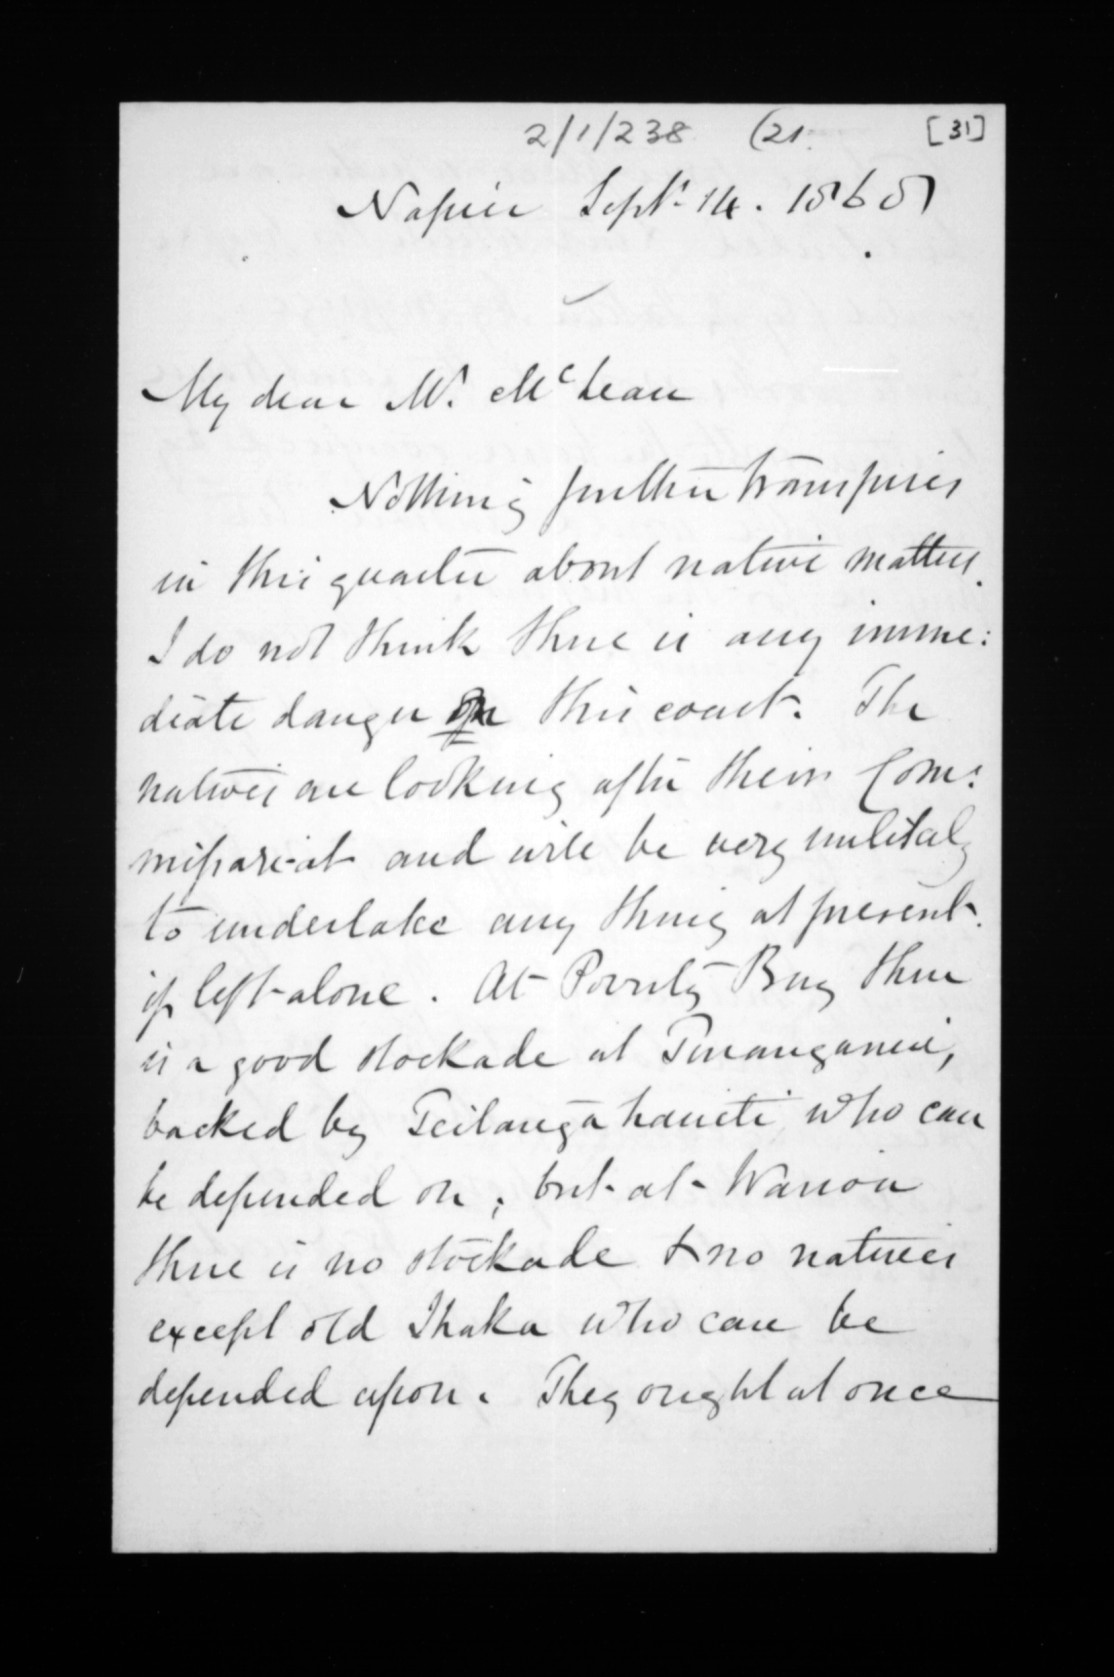 2/1/238 (21. [31]
Napier Sept. 14. 1868
My dear Mr. McLean
Nothing further transpires
in this quarter about native matters.
I do not think there is any imme:
diate danger on this coast. The
natives are looking after their Com:
missariat and will be very unlikely
to undertake any thing at present.
if left alone. At Poverty Bay there
is a good stockade at Turanganui,
backed by who can
be depended on, but at Wairoa
there is no stockade & no natives
except old Ihaka who can be
depended upon. They ought at once